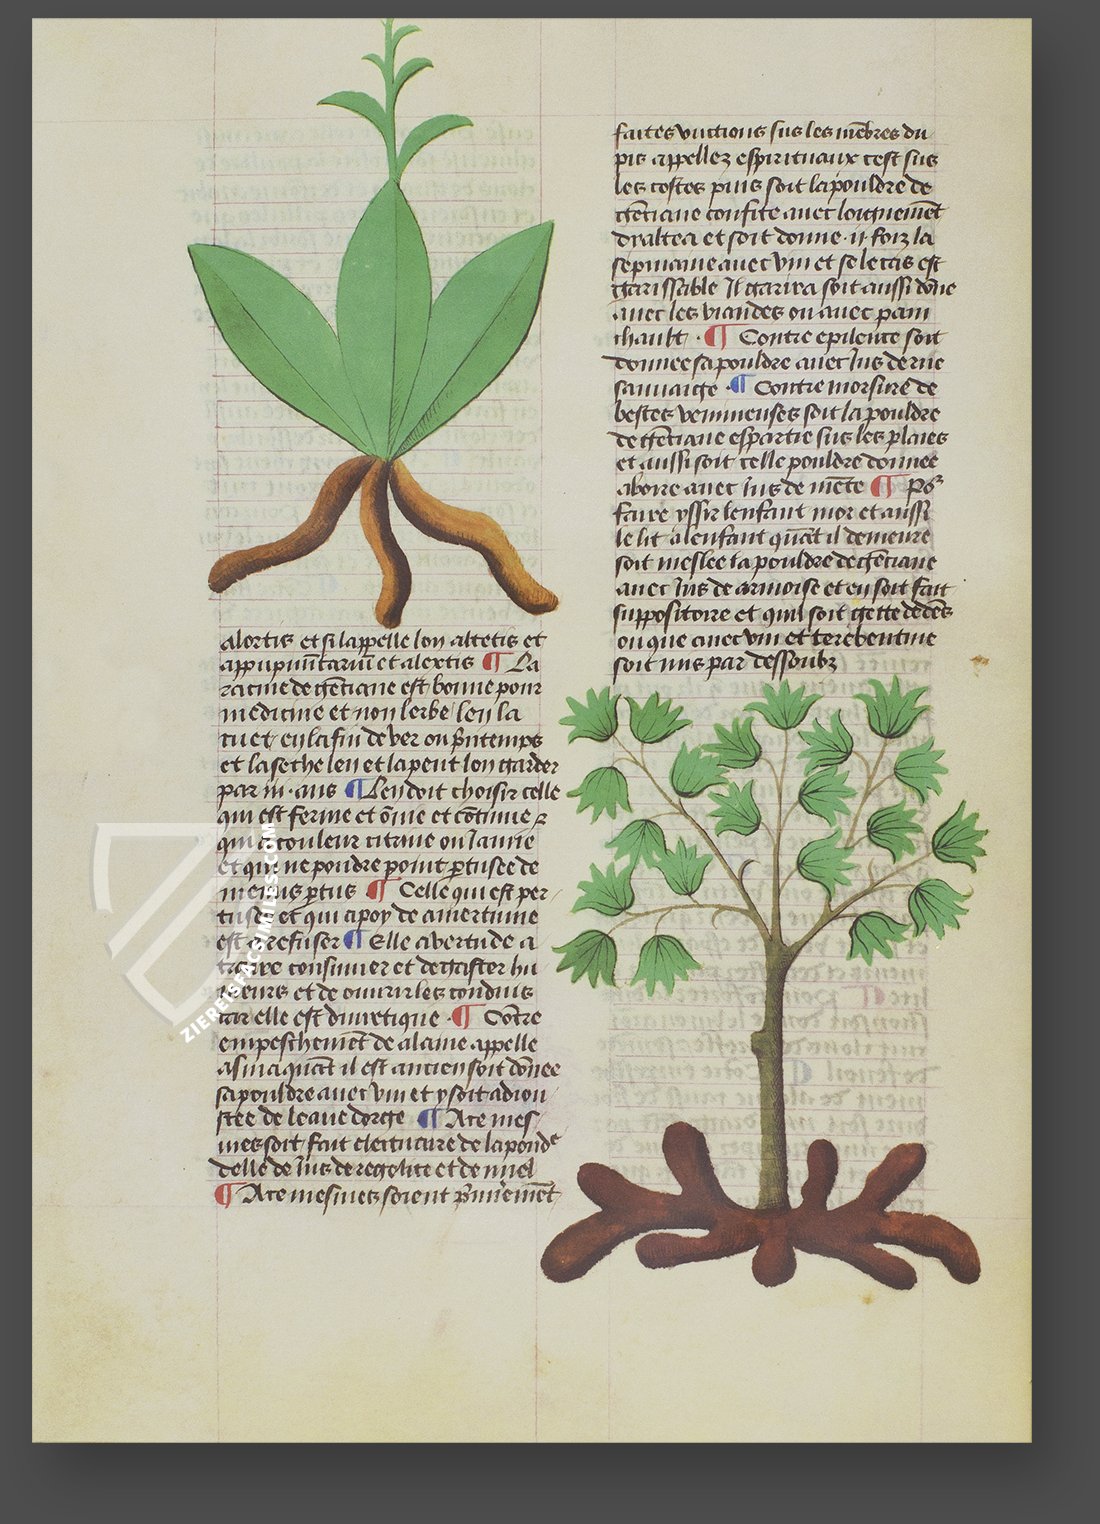 alortis et si lappelle lon altetis et
appupunctariu et alextis ¶ La
racine de gētiane est bonne pour
medicine et non lerbe len la
cuet en la fin de ver ou prītemps
et la seche len et la peut lon garder
par iii ans ¶ Len doit choisir celle
qui est ferme et ōnie et cōtinue
qui a couleur citrine ou iaune
et qui ne poudre point ꝑtusee de
menus ꝑtus ¶ Celle qui est per
tusee et qui a poy de amertume
est a refuser ¶ Elle a vertu de a
consumer et degaster hu
meurs et de ouurir les conduis
car elle est diuretique ¶ Cōtre
empeschement de alaine appelle
asma quāt il est ancien soit dōnee
sa pouldre auec vin et y soit adiou
stee de leaue dorge ¶ A ce mes
mes soit fait electuaire de la poude
delle de ius de regolice et de miel
¶ A ce mesmes soient premieremēt
faites unctions sus les mēbres du
pis appellez espirituaux cest sus
les costes puis soit la pouldre de
gētiane confite auec loignemēt
dyaltea et soit donne ii foiz la
sepmaine auec vin et se le cas est
garissable Il garira soit aussi dōne
auec les viandes ou auec pain
chault ¶ Contre epilence soit
donnee sa pouldre auec ius de rue
sauuaige ¶ Contre morsure de
bestes venimeuses soit la pouldre
de gētiane espartie sus les plaies
et aussi soit celle pouldre donnee
a boire auec ius de mēte ¶ Pꝰ
faire yssir lenfant mor et aussi
le lit a lenfant quāt il demeure
soit meslee la pouldre de gētiane
auec ius de armoise et en soit fait
suppositoire et quil soit gette dedēs
ou que auec vin et terebentine
soit mis par dessoubz
ZIEREISFACSIMILES.COM